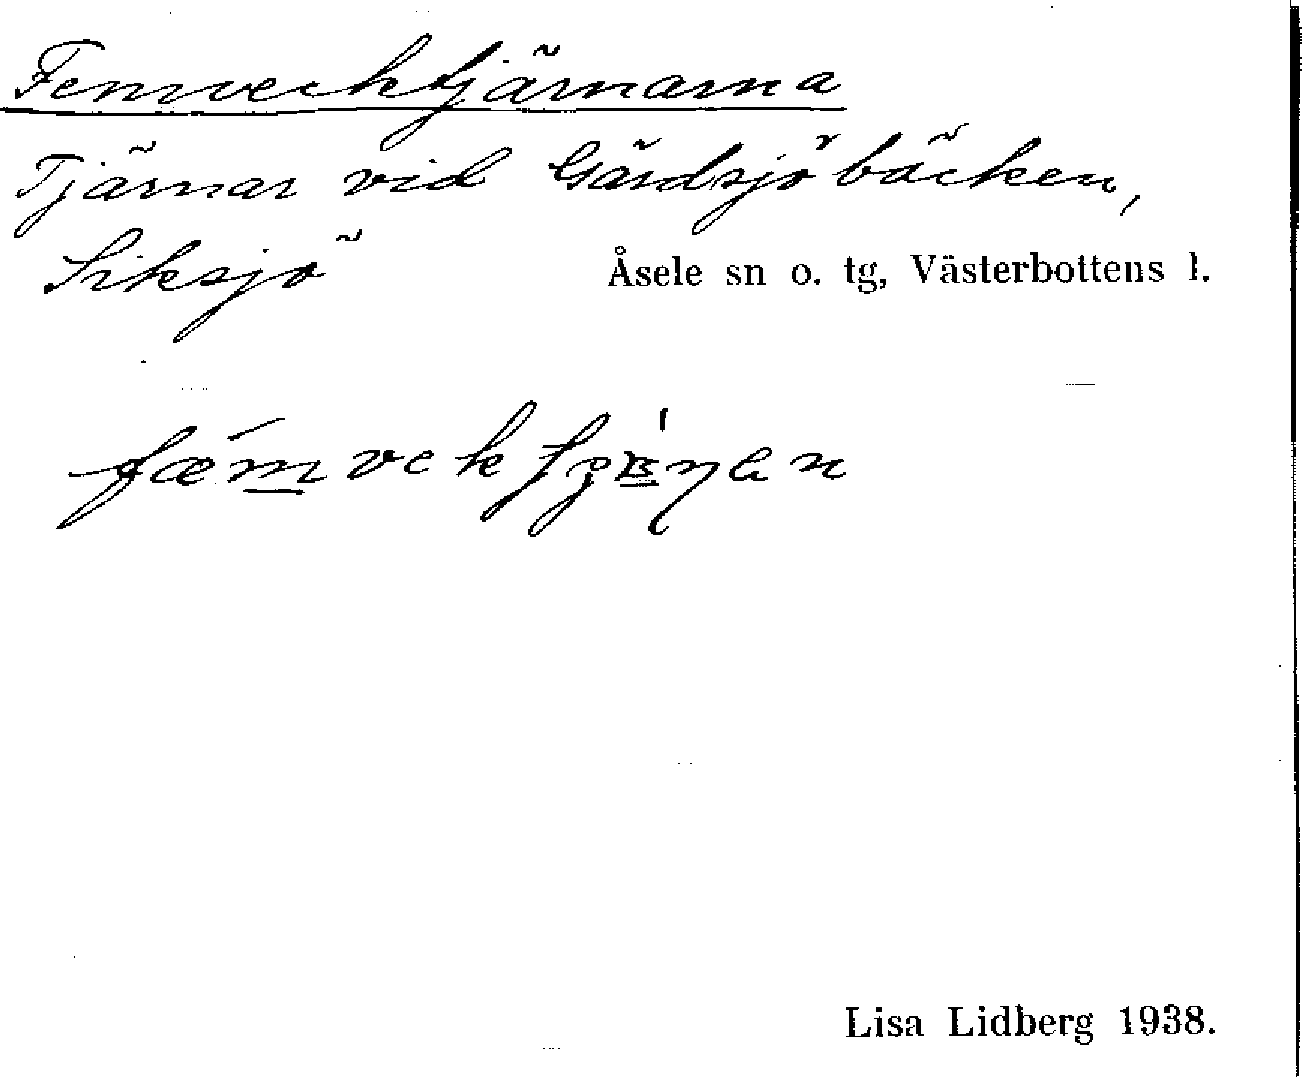 Femvecktjärnarna
Tjärnar vid Gärdsjöbäcken,
Siksjö
Åsele sn o. tg, Västerbottens l.
Lisa Lidberg 1938.